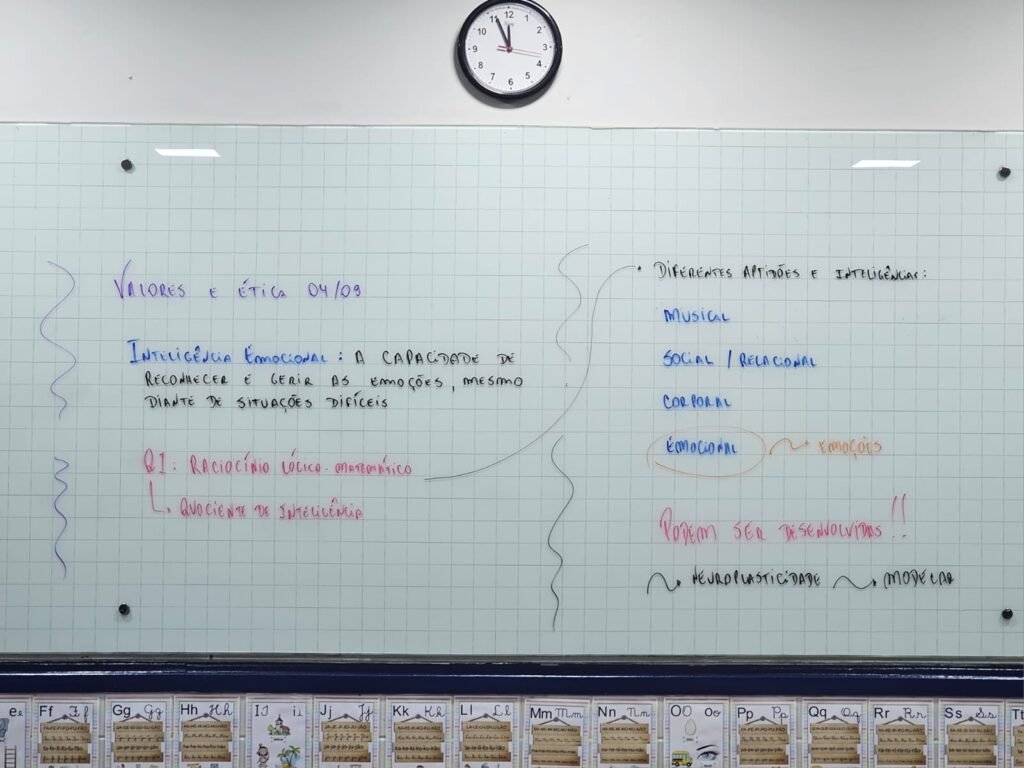 12
11 1
10 2
9 3
8 4
7 5
6
VALORES E ÉTICA 04/09
INTELIGÊNCIA EMOCIONAL: A CAPACIDADE DE
RECONHECER E GERIR AS EMOÇÕES, MESMO
DIANTE DE SITUAÇÕES DIFÍCEIS
QI: RACIOCÍNIO LÓGICO-MATEMÁTICO
QUOCIENTE DE INTELIGÊNCIA
• DIFERENTES APTIDÕES E INTELIGÊNCIAS:
MUSICAL
SOCIAL / RELACIONAL
CORPORAL
EMOCIONAL EMOÇÕES
PODEM SER DESENVOLVIDAS!!
NEUROPLASTICIDADE MODELAR
e e
Ff Ff
Gg Gg
Hh Hh
Ii Ii
Jj Jj
Kk Kk
Ll Ll
Mm Mm
Nn Nn
Oo Oo
Pp Pp
Qq Qq
Rr Rr
Ss Ss
Tt